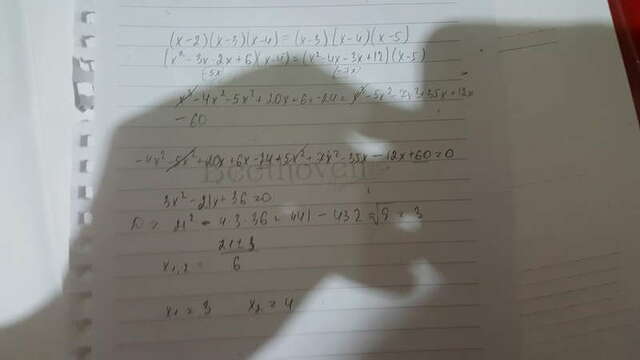 (x-2)(x-3)(x-4) = (x-3)(x-4)(x-5)
(x²-3x-2x+6)(x-4) = (x²-4x-3x+12)(x-5)
(-5x) (-7x)
x³-4x²-5x²+20x+6x-24 = x³-5x²-7x²+35x+12x
-60
-4x²-5x²+20x+6x-24+5x²+7x²-35x-12x+60=0
3x²-21x+36=0
D = 21²-4·3·36 = 441-432 = √9 = 3
x₁,₂ = 21±3
6
x₁ = 3 x₂ = 4